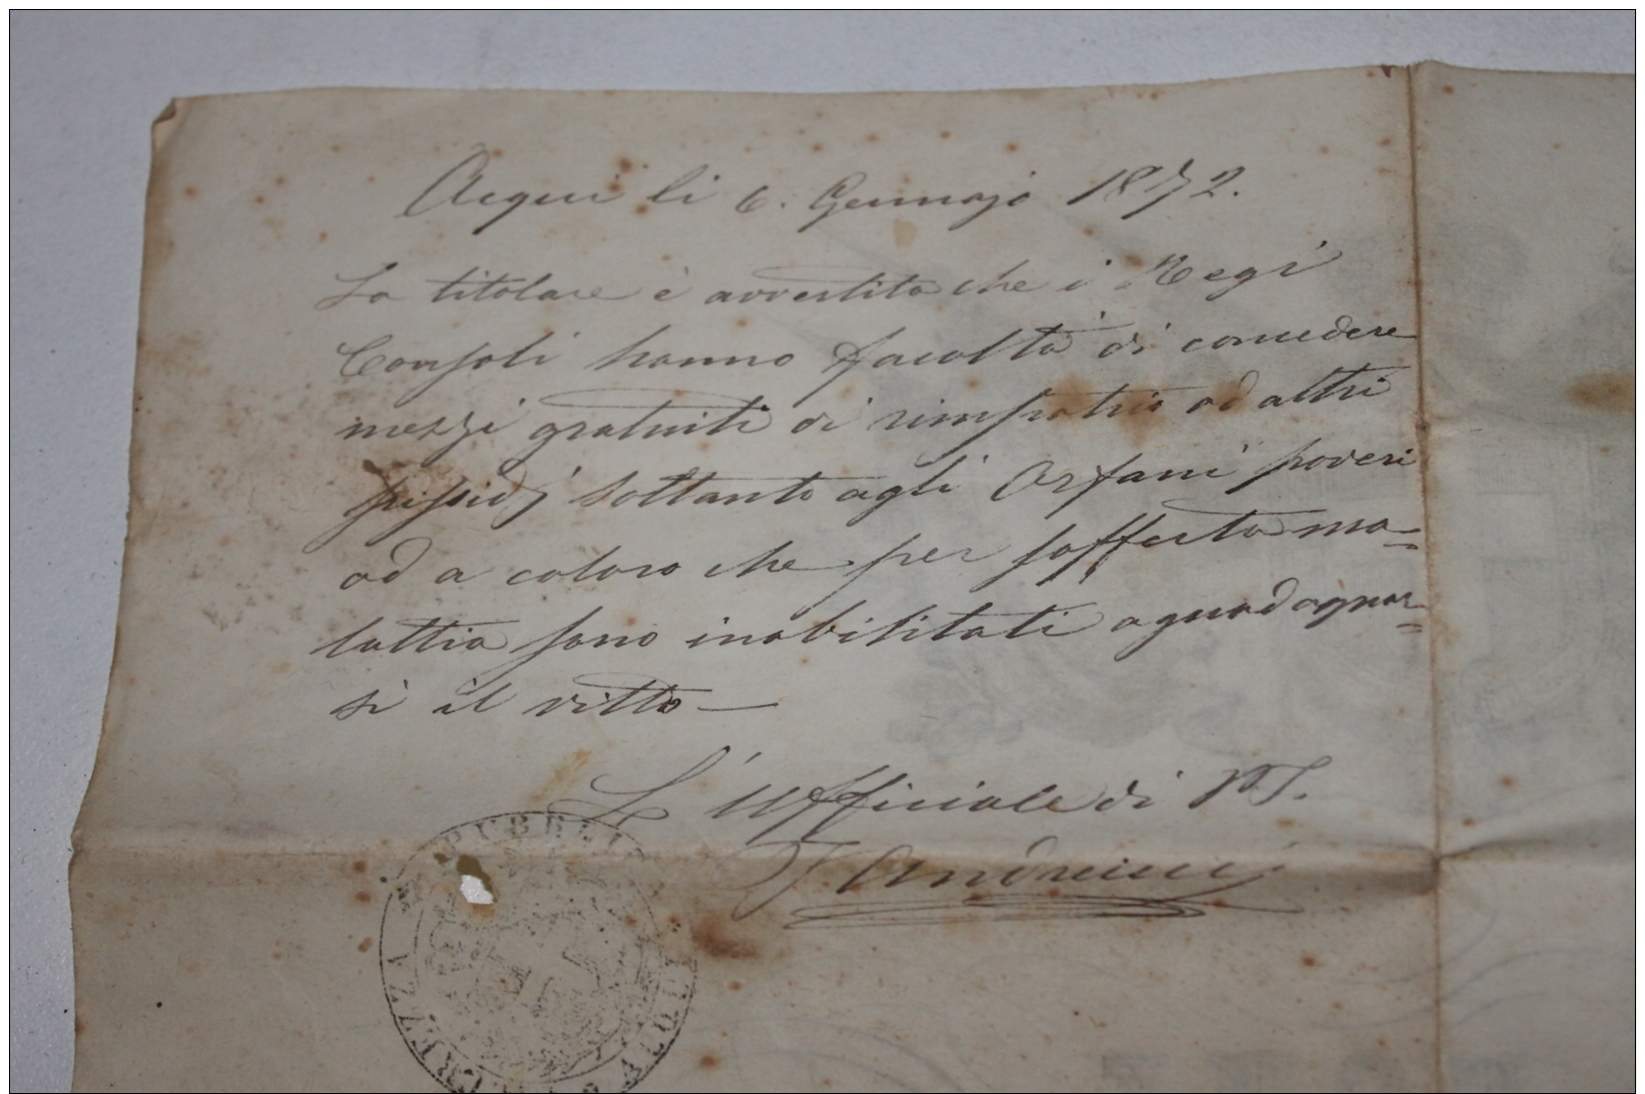 Acqui li 6. Gennajo 1872.
La titolare è avvertita che i Regi
Consoli hanno facoltà di concedere
mezzi gratuiti di rimpatrio od altri
sussidj soltanto agli Orfani poveri
od a coloro che per sofferta ma=
lattia sono inabilitati a guadagnar=
si il vitto —
L'Ufficiale di P.S.
PUBBLICA
SICUREZZA
ACQUI